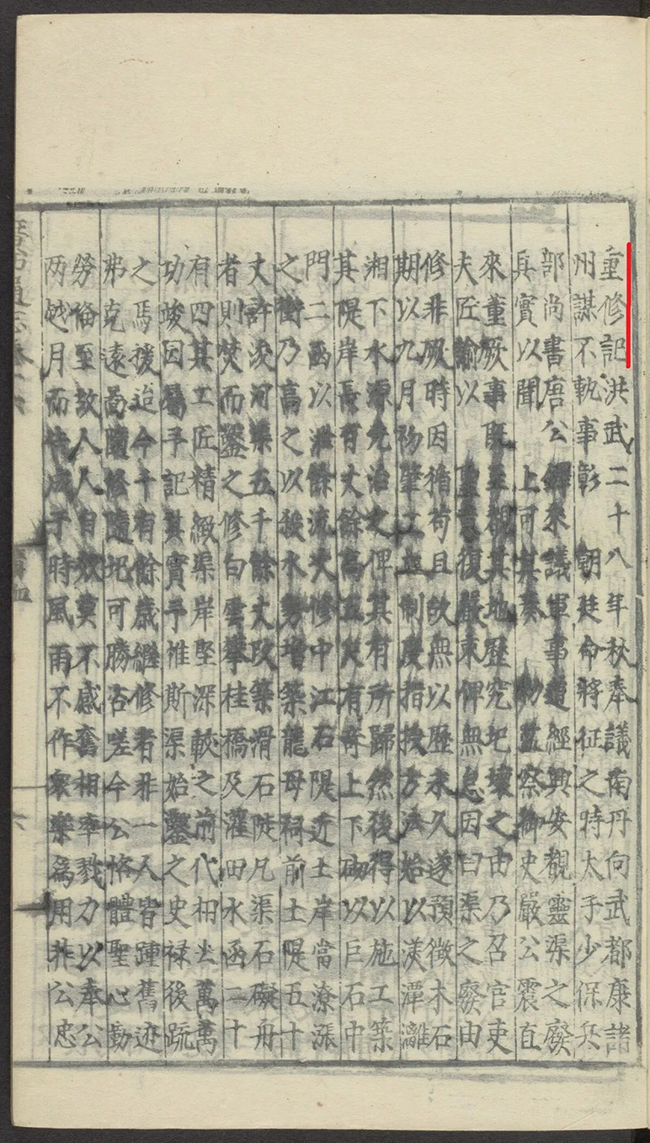 重修記洪武二十八年秋奉議南丹向武都康諸
州謀不軌事彰 朝廷命將征之時太子少保兵
部尚書唐公鐸來議軍事道經興安觀靈渠之廢
具實以聞 上可其奏 勑監察御史嚴公震直
來董厥事既至觀其地歷究圮壞之由乃召官吏
夫匠諭以 聖意復嚴束俾無怠因曰渠之廢由
修非厥時因循苟且故無以歷永久遂預徵木石
期以九月初肇工制度指授方濟始以渼潭灕
湘下水源先治之俾其有所歸然後得以施工築
其隄岸長有丈餘高五尺有奇上下砌以巨石中
門二函以洩餘流大修中江石隄近土岸當潦漲
之衝乃高之以殺水勢增築龍母祠前土隄五十
丈許浚河渠五千餘丈改築滑石陡凡渠石礙舟
者則焚而鑿之修白雲攀桂橋及灌田水函二十
有四其工匠精緻渠岸堅深較之前代相去萬萬
功竣因屬予記其實予惟斯渠始鑿之史祿後疏
之馬援迨今千有餘歲繼修者非一人皆踵舊迹
弗克遠啚隨修隨圮可勝咨嗟今公恪體聖心勤
勞備至故人人自效莫不感奮相率戮力以奉公
两越月而告成于時風雨不作衆樂為用非公忠
通志卷十六
六